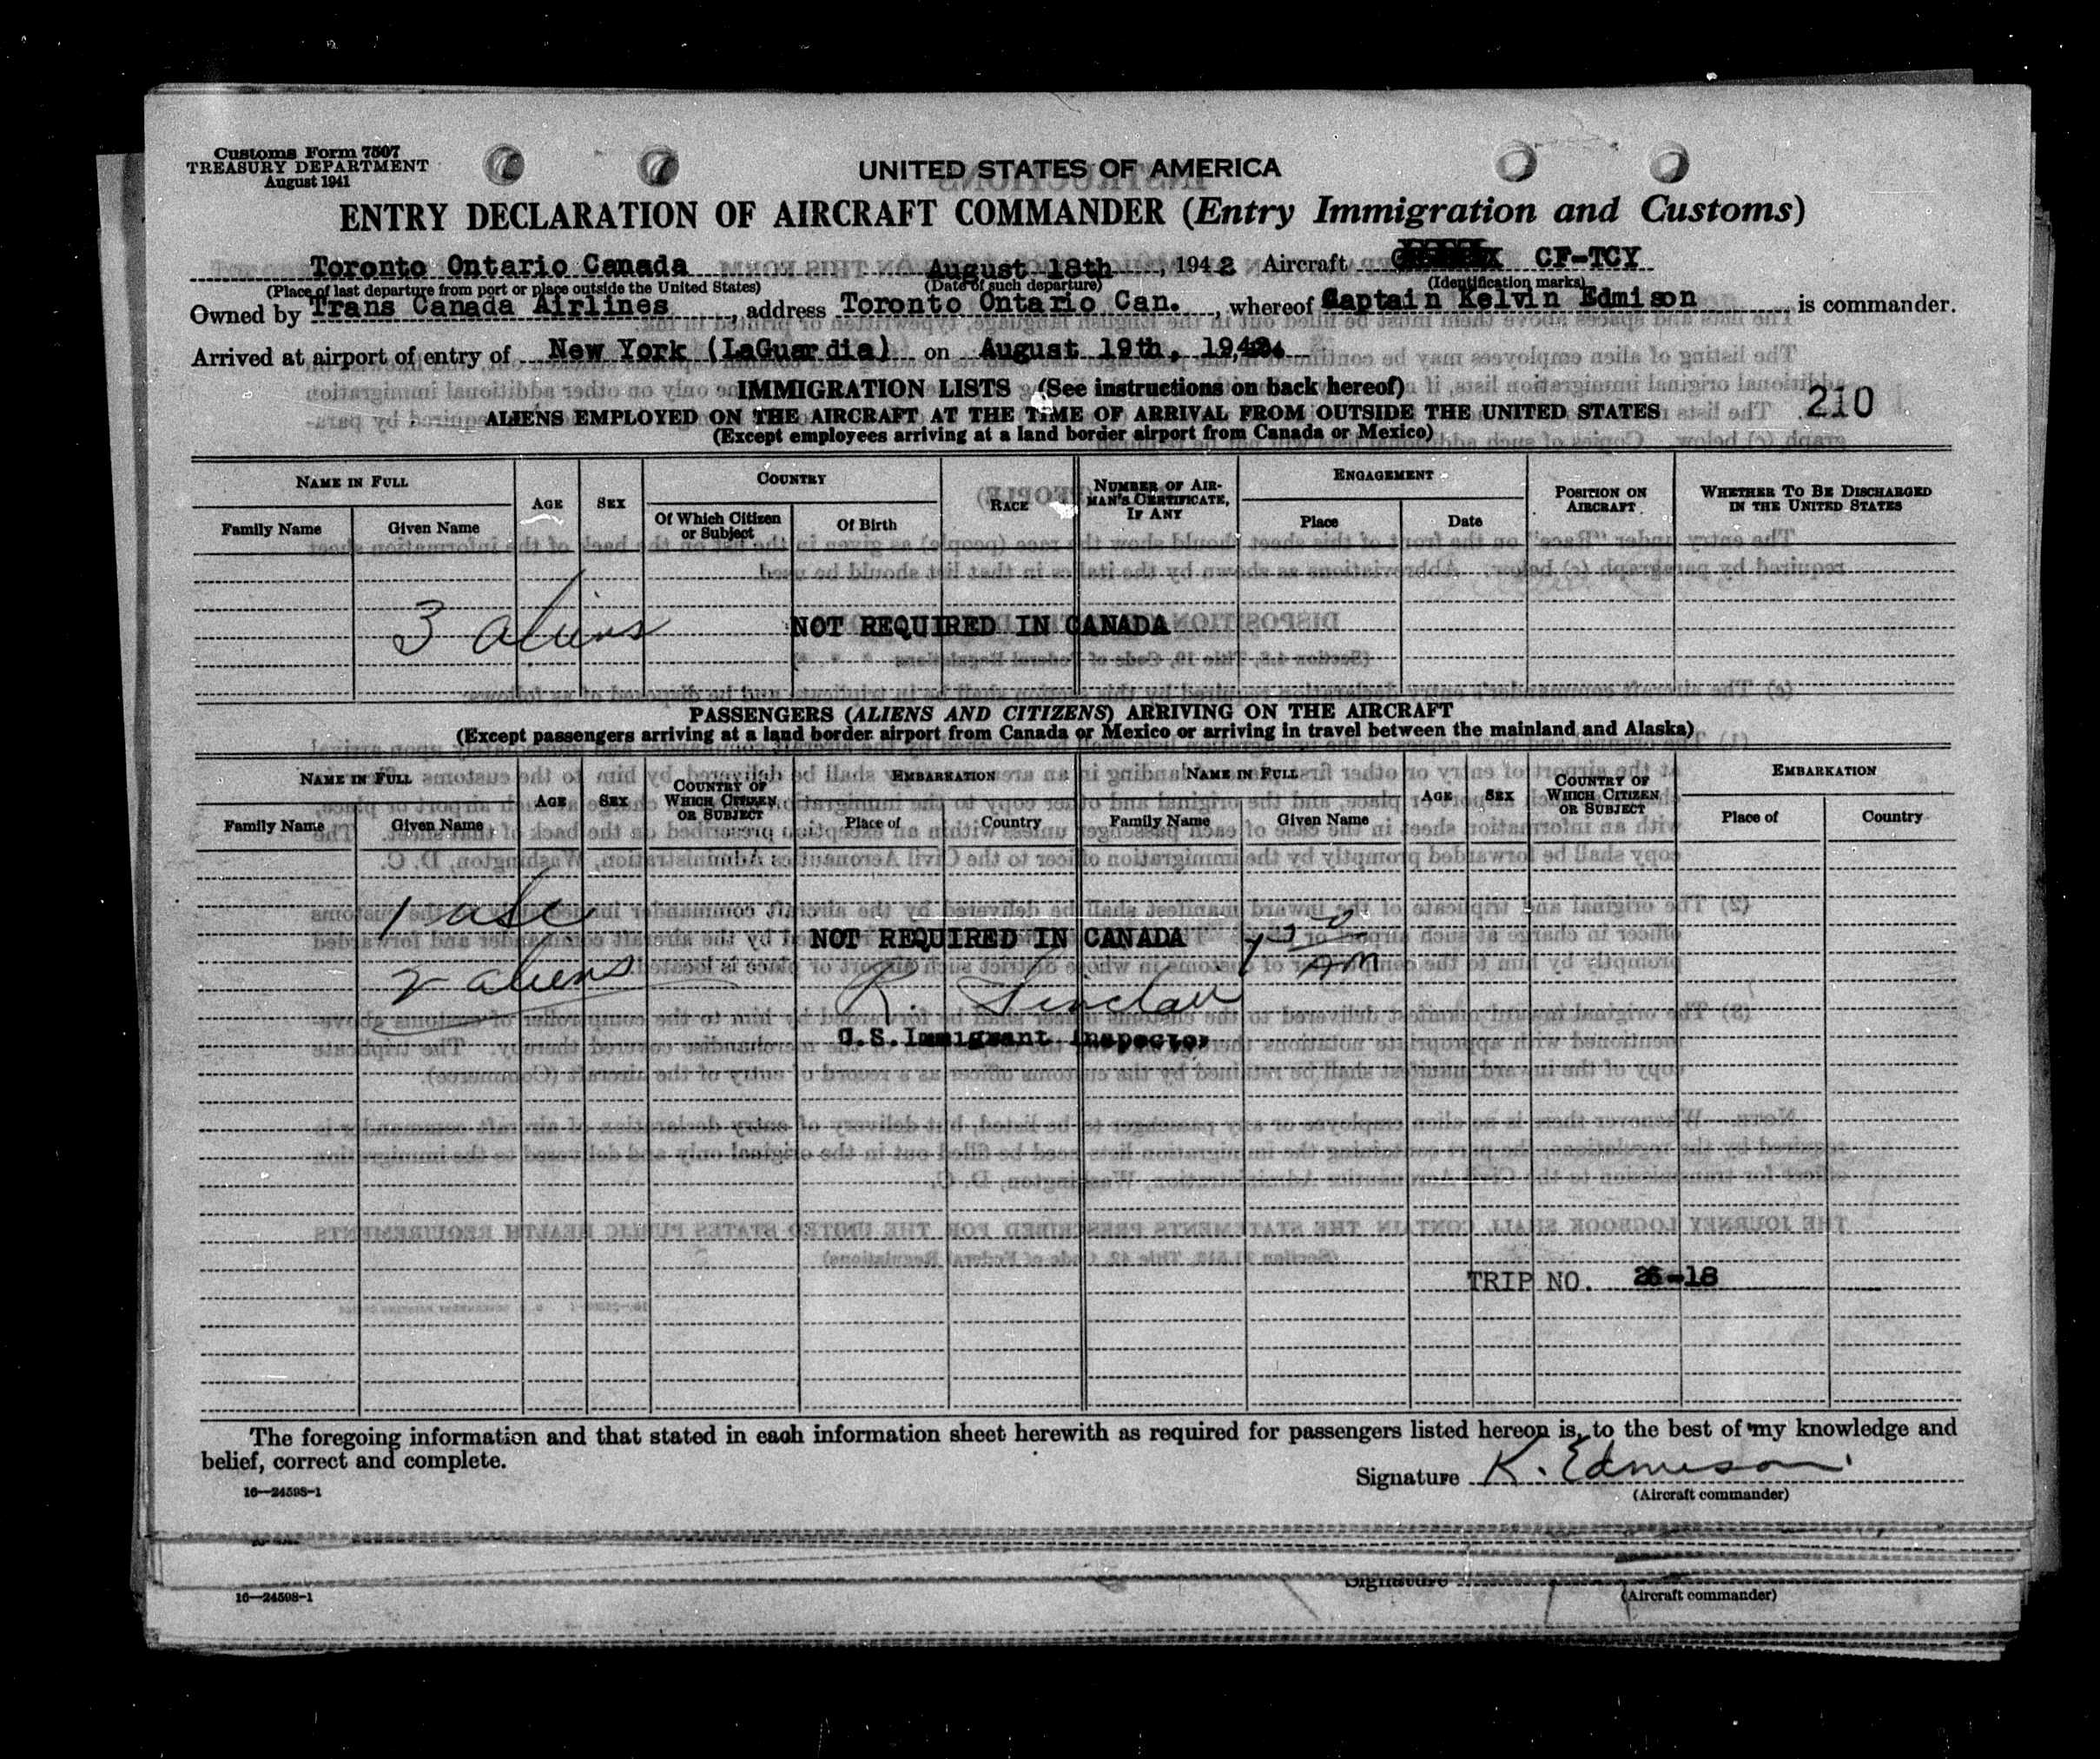 Customs Form 7507
TREASURY DEPARTMENT
August 1941
UNITED STATES OF AMERICA
ENTRY DECLARATION OF AIRCRAFT COMMANDER (Entry Immigration and Customs)
Toronto Ontario Canada August 18th, 1942 Aircraft CF-TCY
(Place of last departure from port or place outside the United States) (Date of such departure) (Identification marks)
Owned by Trans Canada Airlines, address Toronto Ontario Can., whereof Captain Kelvin Edmison is commander.
Arrived at airport of entry of New York (LaGuardia) on August 19th, 1942.
IMMIGRATION LISTS (See instructions on back hereof)
210
ALIENS EMPLOYED ON THE AIRCRAFT AT THE TIME OF ARRIVAL FROM OUTSIDE THE UNITED STATES
(Except employees arriving at a land border airport from Canada or Mexico)
NAME IN FULL AGE SEX COUNTRY RACE NUMBER OF AIRMAN'S CERTIFICATE, IF ANY ENGAGEMENT POSITION ON AIRCRAFT WHETHER TO BE DISCHARGED IN THE UNITED STATES
Family Name Given Name Of Which Citizen or Subject Of Birth Place Date
3 aliens NOT REQUIRED IN CANADA
PASSENGERS (ALIENS AND CITIZENS) ARRIVING ON THE AIRCRAFT
(Except passengers arriving at a land border airport from Canada or Mexico or arriving in travel between the mainland and Alaska)
NAME IN FULL AGE SEX COUNTRY OF WHICH CITIZEN OR SUBJECT EMBARKATION NAME IN FULL AGE SEX COUNTRY OF WHICH CITIZEN OR SUBJECT EMBARKATION
Family Name Given Name Place of Country Family Name Given Name Place of Country
NOT REQUIRED IN CANADA
AM
2 aliens
R. Sinclair
U.S. Immigrant Inspector
TRIP NO. -18
The foregoing information and that stated in each information sheet herewith as required for passengers listed hereon is, to the best of my knowledge and
belief, correct and complete.
Signature K. Edmison
16—24598-1
(Aircraft commander)
Signature
16—24598-1
(Aircraft commander)